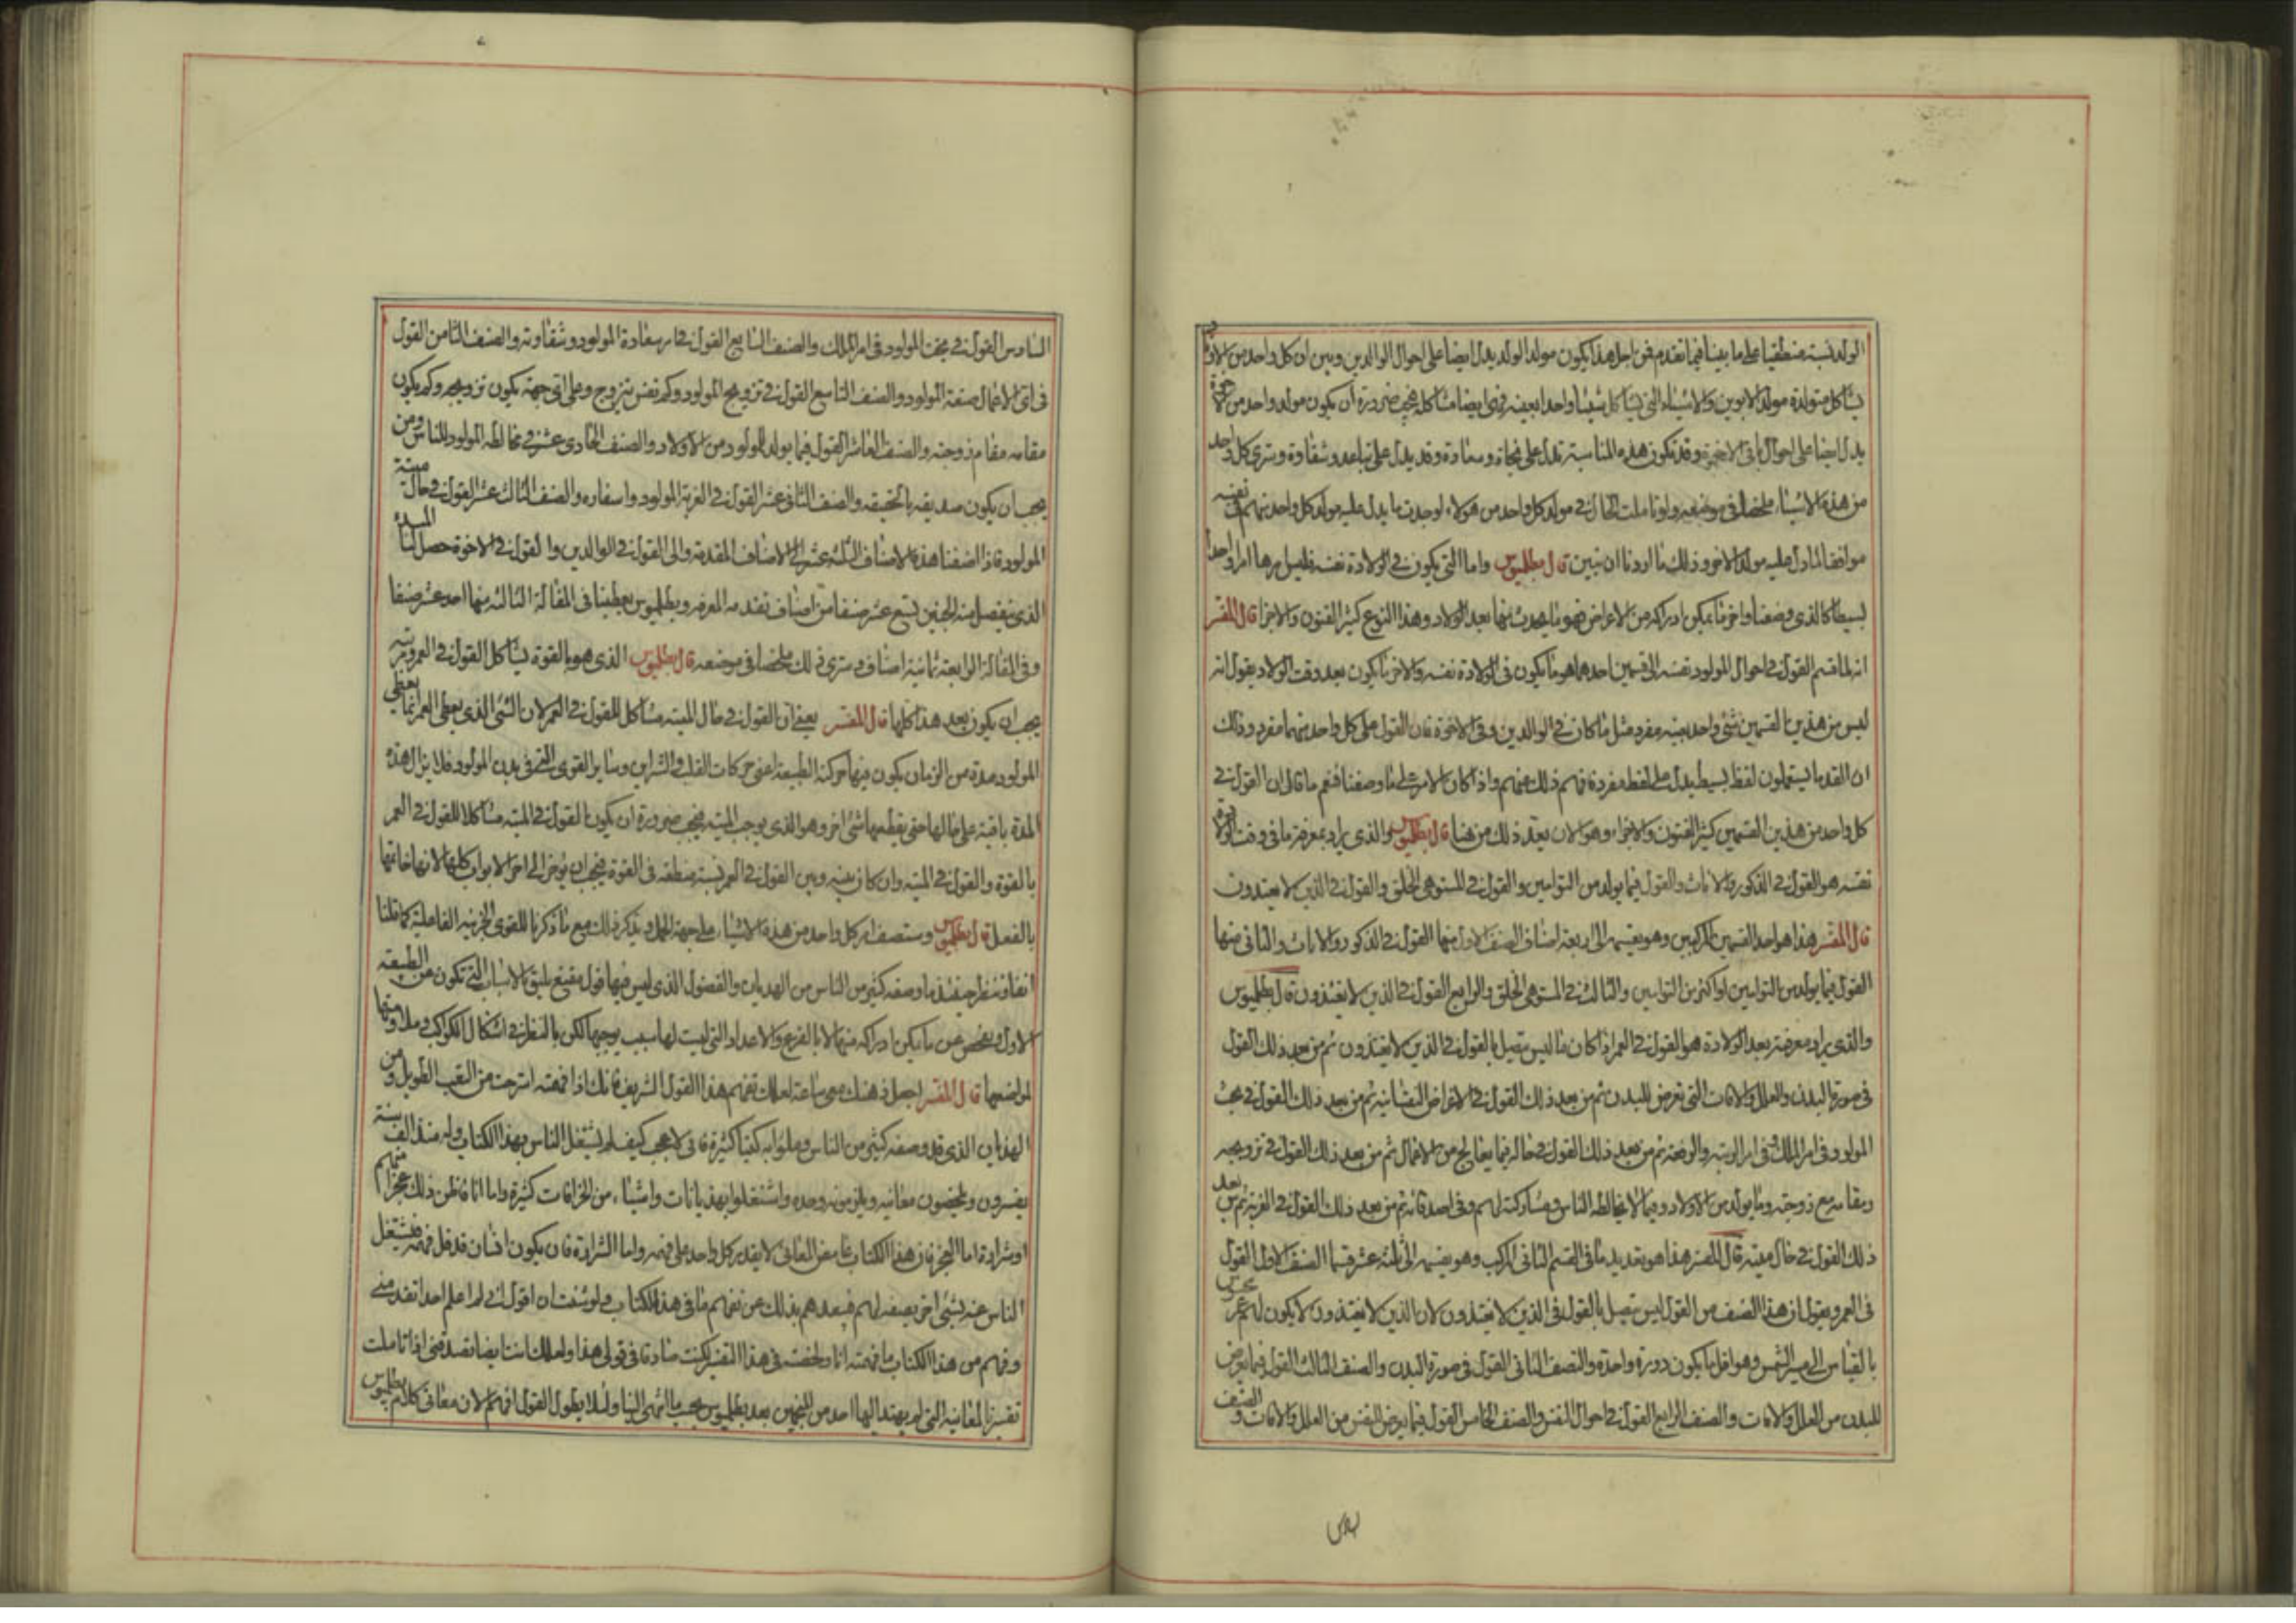 الولد نسبة منطقيا على ما بينا فيما تقدم فمن اجل هذا يكون مولد الولد يدل ايضا على احوال الوالدين وبين ان كل واحد من الاولاد
يشاكل متولدة مولد الابوين والاشياء التي يشاكل شيئا واحدا بعينه فهى ايضا متشاكلة فيجب ضرورة ان يكون مولد واحد من الاخوة
يدل ايضا على احوال باقى الاخوة وقد تكون هذه المناسبة تدل على نجاة وسعادة وقد يدل على تباعد وشقاوة وسترى كل واحد
من هذه الاشياء ملخصا فى موضعه ولو تاملت الحال فى مولد كل واحد من هولاء لوجدت ما يدل عليه مولد كل واحد منهم فى نفسه
موافقا لما دل عليه مولد الاخر وذلك ما اردنا ان نبين قال بطلميوس واما التي يكون فى الولادة نفسه فليس امرها امرا واحدا
بسيطا كالذى وصفنا واخر ما يمكن ادراكه من الاعراض فهو ما يحدث منها بعد الولاد وهذا النوع كثير الفنون والاجزا قال المفسر
انه لما قسم القول فى احوال المولود نفسه الى قسمين احدهما هو ما يكون فى الولادة نفسه والاخر ما يكون بعد وقت الولاد يقول انه
ليس من هذين القسمين شئ واحد بعينه مفرد مثل ما كان فى الوالدين وفى الاخوة فان القول على كل واحد منهما مفرد وذلك
ان القدما يستعملون لفظ بسيط يدل على لفظه مفردة فافهم ذلك عنهم واذا كان الامر على ما وصفنا فنعم ما قال ان القول فى
كل واحد من هذين القسمين كثير الفنون والاجزاء وهو الان يعدد ذلك من هنا قال بطلميوس والذى يراد معرفته ما فى وقت الولادة
نفسه هو القول فى الذكور والاناث والقول فيما يولد من التوامين والقول فى المشوهى الخلق والقول فى الذين لا يغتذون
قال المفسر هذا هو احد القسمين المركبين وهو يقسمه الى اربعة اصناف الصنف الاول منها القول فى الذكور والاناث والثانى منها
القول فيما يولد من التوامين او اكثر من التوامين والثالث فى المشوهى الخلق والرابع القول فى الذين لا يغتذون قال بطلميوس
والذى يراد معرفته بعد الولادة هو القول فى العمر اذا كان ما ليس يتصل بالقول فى الذين لا يغتذون ثم من بعد ذلك القول
فى صورة البدن والعلل والافات التى تعرض للبدن ثم من بعد ذلك القول فى الاعراض النفسانية ثم من بعد ذلك القول فى بخت
المولود فى امر الملك وفى امر الرتبه والرفعة ثم من بعد ذلك القول فى حاله فيما يعالج من الاعمال ثم من بعد ذلك القول فى تزويجه
ومقامه مع زوجته وما يولد من الاولاد وفيما لا يخالطه الناس ومشاركته لهم وفى اصدقائه ثم من بعد ذلك القول فى الغربة ثم من بعد
ذلك القول فى حال ميتته قال المفسر هذا هو تعديد ما فى القسم الثانى المركب وهو يقسمه الى ثلثة عشر قسما الصنف الاول القول
فى العمر ويقول ان هذا الصنف من القول ليس يتصل بالقول فى الذين لا يغتذون لان الذين لا يغتذون لا يكون لهم عمر
بالقياس الى مسير الشمس وهو اقل ما يكون دورة واحدة والنصف الثانى القول فى صورة البدن والصنف الثالث القول فيما يعرض
للبدن من العلل والافات والصنف الرابع القول فى احوال النفس والصنف الخامس القول فيما يعرض للنفس من العلل والافات والصنف
السادس القول فى بخت المولود فى امر الملك والصنف السابع القول فى امر سعادة المولود وشقاوته والصنف الثامن القول
فى اى الاعمال صنعة المولود والصنف التاسع القول فى تزويج المولود وكم نفس يتزوج وعلى اى جهة يكون تزويجه وكم يكون
مقامه مقام زوجته والصنف العاشر القول فيما يولد للمولود من الاولاد والصنف الحادى عشر فى مخالطه المولود للناس ومن
يجب ان يكون صديقه بالحقيقه والصنف الثانى عشر القول فى الغربة المولود واسفاره والصنف الثالث عشر القول فى حال ميتة
المولود فاذا اضفنا هذه الاصناف الثلثه عشر الى الاصناف المقدمة والى القول فى الوالدين والقول فى الاخوة حصل لنا
الذى ينفصل منه الجنين تسع عشر صنفا من اصناف تقدمه المعرفه وبطلميوس يعطينا فى المقالة الثالثة منها احد عشر صنفا
وفى المقالة الرابعة ثمانية اصناف وسترى ذلك ملخصا فى موضعه قال بطلميوس الذى هو بالقوة يشاكل القول فى العمر
يجب ان يكون بعد هذا كلها قال المفسر يعنى ان القول فى حال الميته مشاكل للقول فى العمر لان الشئ الذى يعطى العمر انما يعطى
المولود مدة من الزمان يكون فيها حركة الطبيعة اعنى حركات القلب والشراين وسائر القوى التى فى بدن المولود فلا يزال هذه
المدة باقية على حالها حتى يقطعها شئ اخر وهو الذى يوجب الميته فيجب ضرورة ان يكون القول فى الميته مشاكلا للقول فى العمر
بالقوة والقول فى الميته وان كان بينه وبين القول فى العمر نسبة منطقه فى القوة فيجب ان يؤخر الى اخر الابواب كلها لانها خاتمتها
بالفعل قال بطلميوس وستصف امر كل واحد من هذه الاشياء على جهة الجمل ويذكر ذلك مع ما ذكرنا للقوى الجزئيه الفاعلية كما قلنا
انفا وننظر حينئذ ما وصفه كثير من الناس من الهديان والفضول الذى ليس فيها قول مقنع يليق بالاسباب التى تكون من الطبيعه
الاول ونفحص عن ما يمكن ادراكه منها لا بالقرع والاعداد التى ليست لها سبب يوجبها لكن بالنظر فى اشكال الكواكب وملاومتها
لمواضعها قال المفسر اجعل ذهنك معى ساعة لعلك تفهم هذا القول الشريف فانك اذا فهمته استرحت من التعب الطويل ومن
الهذيان الذى قد وصفه كثير من الناس وملؤا به كتبا كثيرة فانى لاعجب كيف لم يشتغل الناس بهذا الكتاب وله منذ الف سنة
يفسرون ويلخصون معانيه ويلزمونه وحده واشتغلوا بهذيانات واشياء من الخرافات كثيرة واما انا فاظن ذلك عجزا منهم
او شرارة اما العجز فان هذا الكتاب غامض المعانى لا يقدر كل واحد على فهمه واما الشرارة فان يكون انسان قد فهمه فيشتغل
الناس عنه بشئ اخر يصفه لهم فيبعدهم بذلك عن تفهم ما فى هذا الكتاب ولو شئت ان اقول انى لم اعلم احدا تقدمنى
وفهم من هذا الكتاب ما فهمته انا ولخصته فى هذا التفسير لكنت صادقا فى قولى هذا ولعلك انت ايضا تصدقنى اذا تاملت
تفسيرنا لمعانيه التى لم يهتد اليها احد من المنجمين بعد بطلميوس بحسب ما انتهى الينا ولئلا يطول القول افهم الان معانى كلام بطلميوس